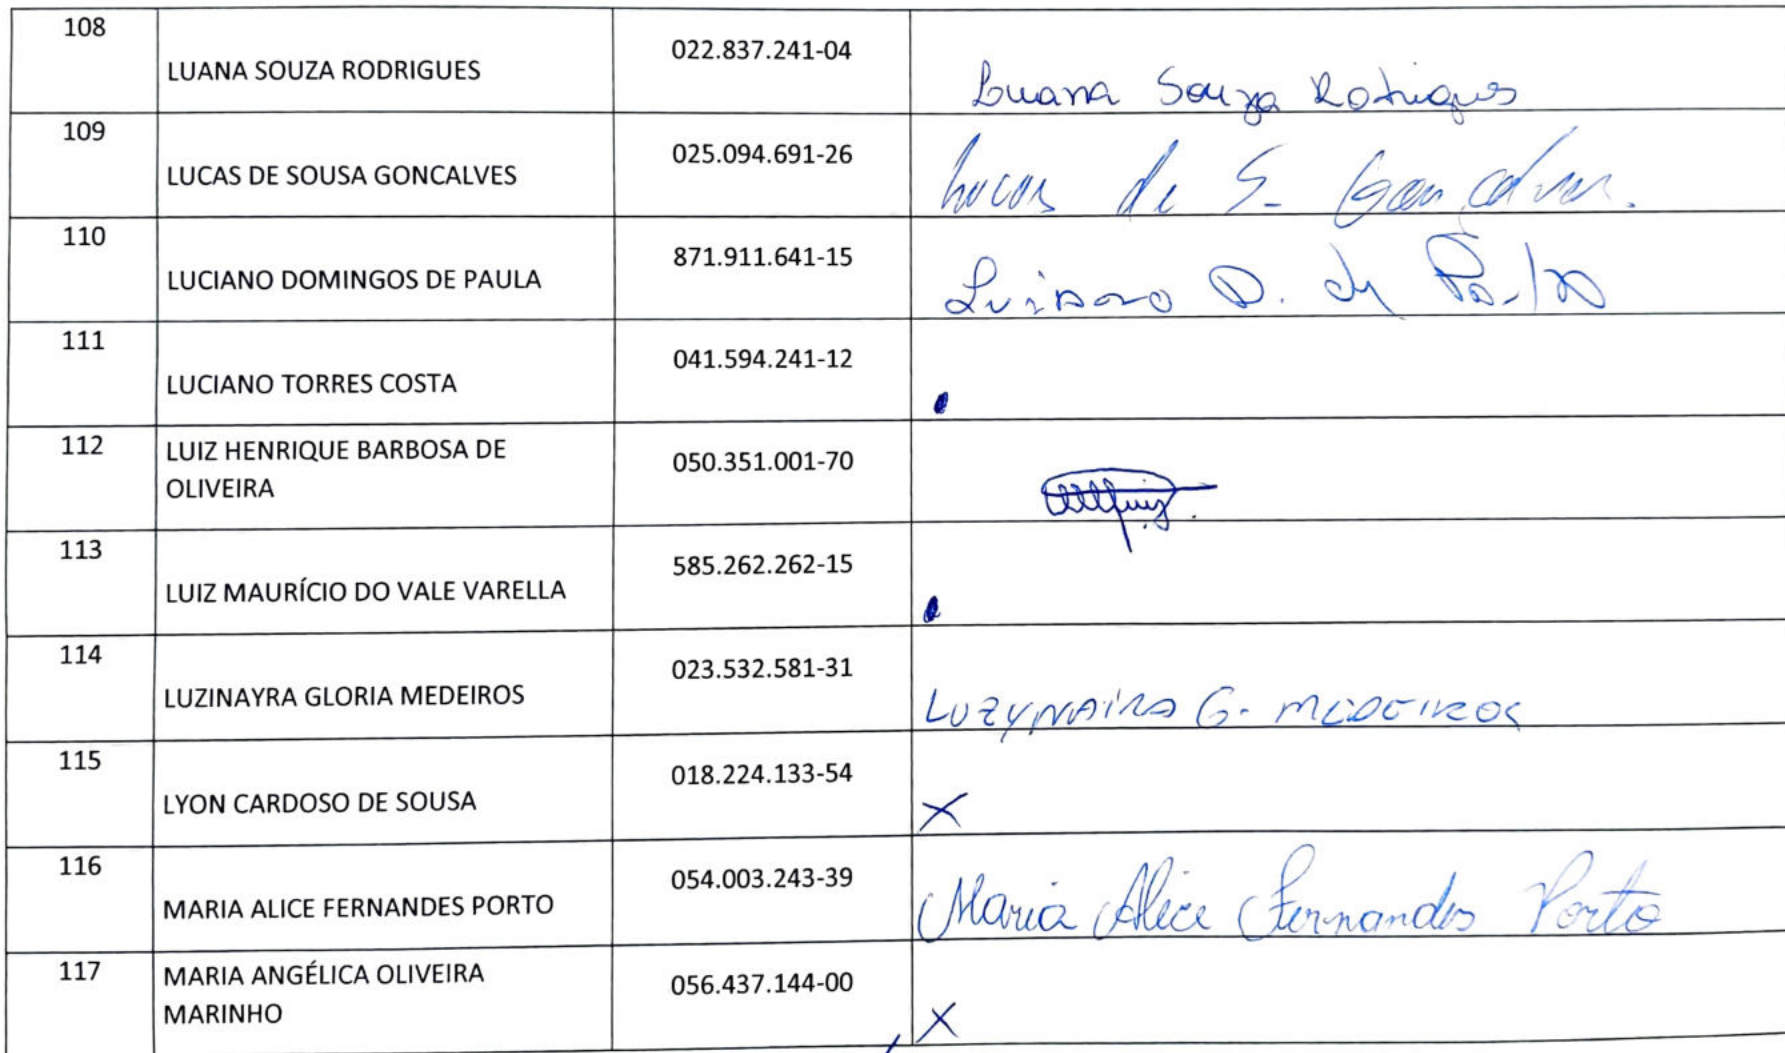 108 LUANA SOUZA RODRIGUES 022.837.241-04 Luana Souza Rodrigues
109 LUCAS DE SOUSA GONCALVES 025.094.691-26 Lucas de S. Gonçalves.
110 LUCIANO DOMINGOS DE PAULA 871.911.641-15 Luciano D. de Paula
111 LUCIANO TORRES COSTA 041.594.241-12
112 LUIZ HENRIQUE BARBOSA DE
OLIVEIRA 050.351.001-70
113 LUIZ MAURÍCIO DO VALE VARELLA 585.262.262-15
114 LUZINAYRA GLORIA MEDEIROS 023.532.581-31 LUZYNAIRA G. MEDEIROS
115 LYON CARDOSO DE SOUSA 018.224.133-54 X
116 MARIA ALICE FERNANDES PORTO 054.003.243-39 Maria Alice Fernandes Porto
117 MARIA ANGÉLICA OLIVEIRA
MARINHO 056.437.144-00 X